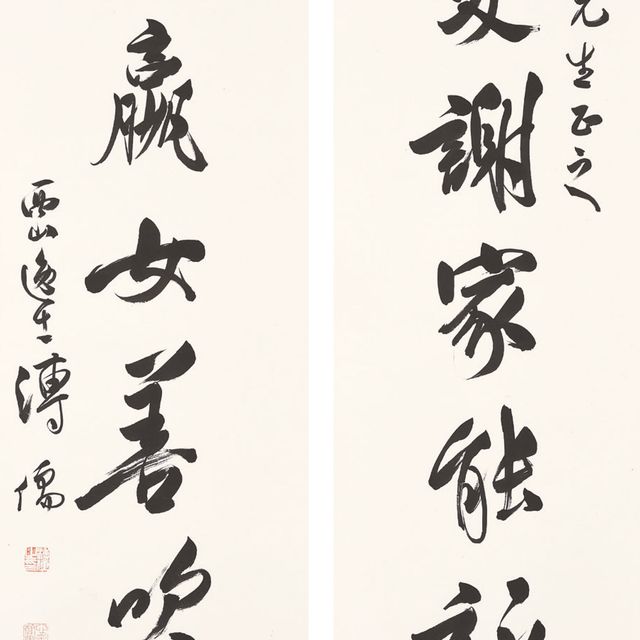 先生正之
謝家能
嬴女善吹
西山逸士溥儒